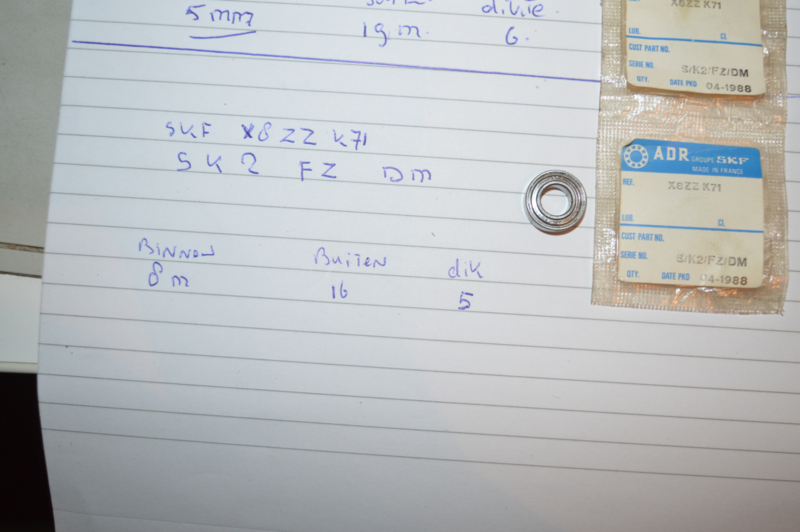 5mm 19 m. 6.
SKF X8ZZ K71
SK2 FZ DM
Binnen Buiten dik
8 m 16 5
X8ZZ K71
LUB. CL.
CUST PART NO.
SERIE NO. S/K2/FZ/DM
QTY. DATE PKD 04-1988
ADR GROUPE SKF
MADE IN FRANCE
REF. X8ZZ K71
LUB. CL.
CUST PART NO.
SERIE NO. S/K2/FZ/DM
QTY. DATE PKD 04-1988